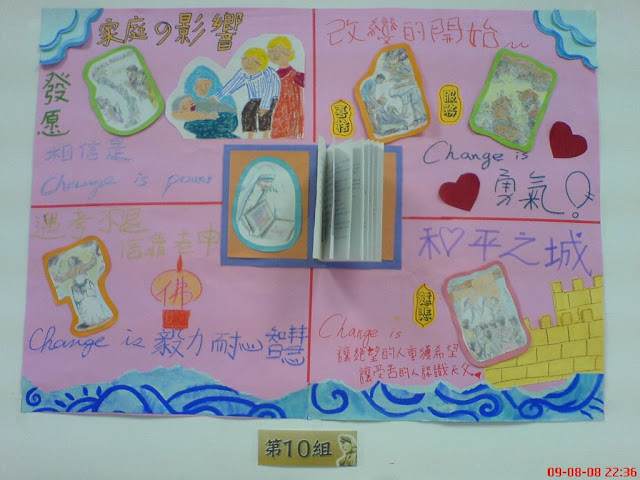 家庭の影響
發愿
相信是
Change is power
改變的開始~~
喜捨
服務
Change is
勇氣!
信靠
佛
Change is 毅力 耐心 智慧
和♡平之城
慈悲
Change is
讓絕望的人重獲希望
讓受苦的人認識天父
第10組
09-08-08 22:36